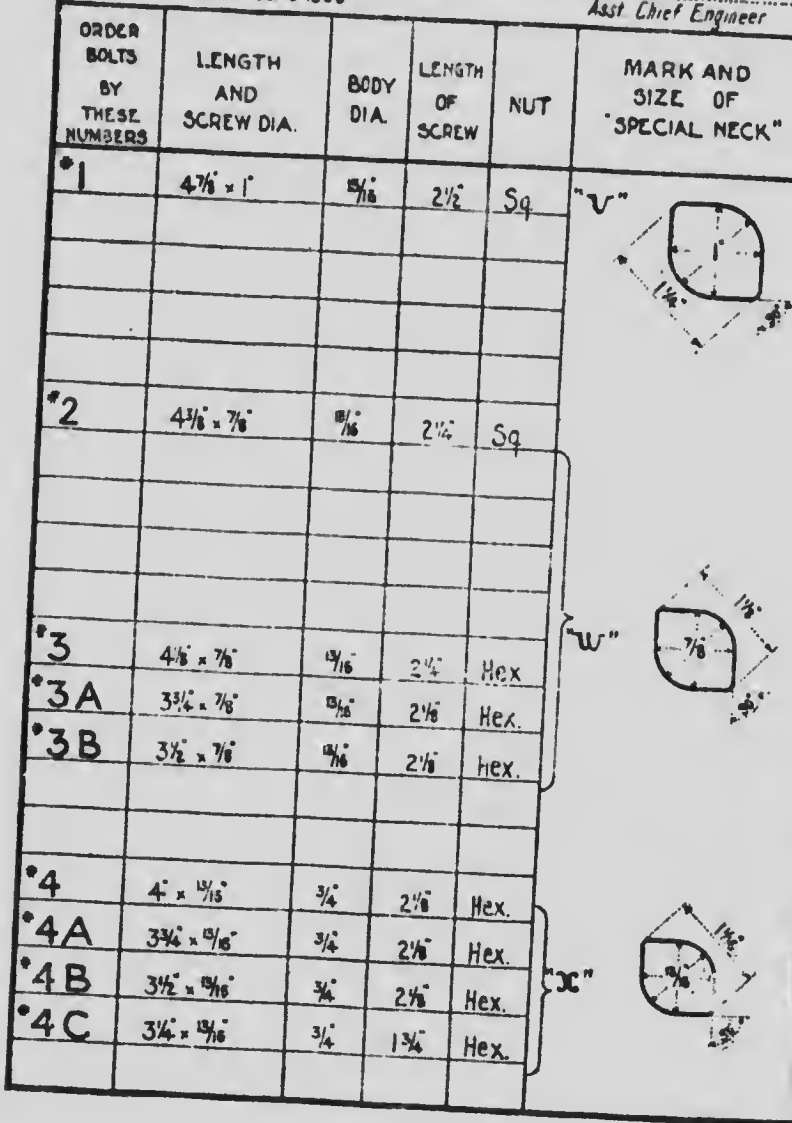 Asst. Chief Engineer
ORDER BOLTS BY THESE NUMBERS
LENGTH AND SCREW DIA.
BODY DIA.
LENGTH OF SCREW
NUT
MARK AND SIZE OF "SPECIAL NECK"
#1 4⅞" x 1" 15/16" 2½" Sq "V"
1"
1½"
#2 4⅜" x ⅞" 2¼" Sq
"W"
1⅛"
⅞"
#3 4⅛" x ⅞" 13/16" 2¼" Hex
#3A 3¾" x ⅞" 13/16" 2⅛" Hex.
#3B 3½" x ⅞" 13/16" 2⅛" Hex.
#4 4" x 13/16" ¾" 2⅛" Hex.
#4A 3¾" x 13/16" ¾" 2⅛" Hex.
#4B 3½" x 13/16" ¾" 2⅛" Hex.
#4C 3¼" x 13/16" ¾" 1¾" Hex.
"X"
13/16"